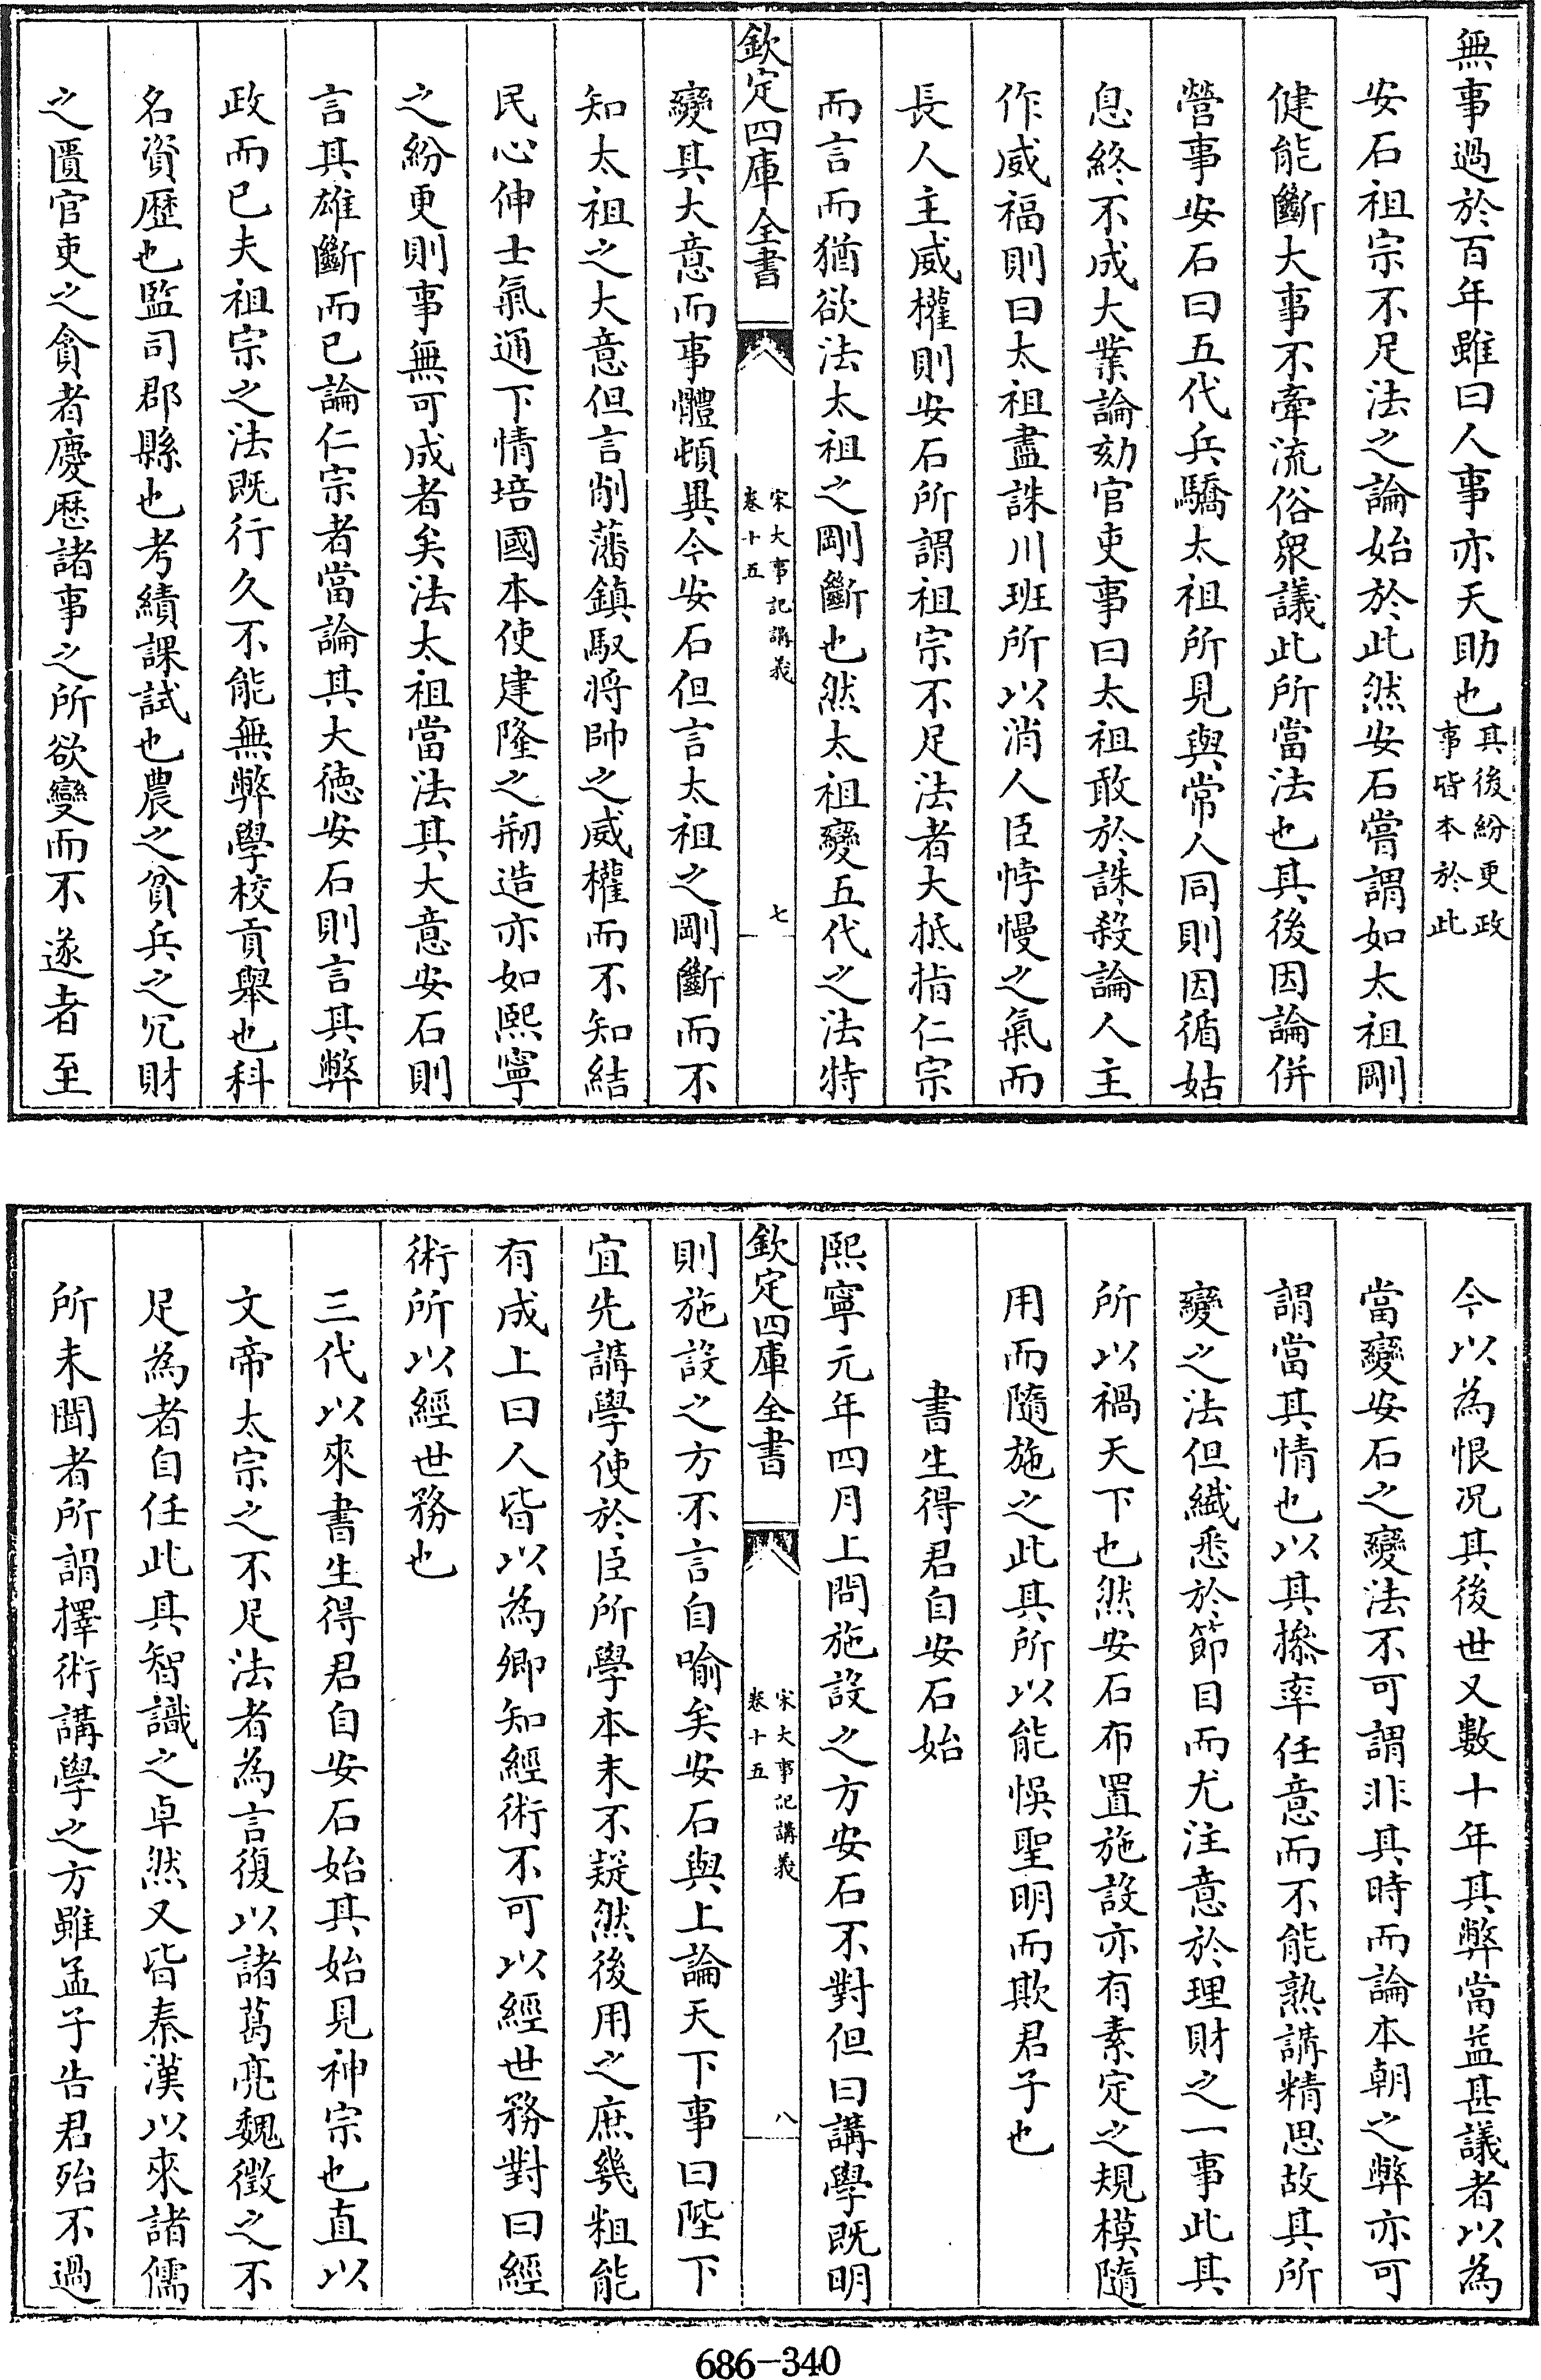 無事過於百年雖曰人事亦天助也其後紛更政事皆本於此
安石祖宗不足法之論始於此然安石嘗謂如太祖剛
健能斷大事不牽流俗衆議此所當法也其後因論併
營事安石曰五代兵驕太祖所見與常人同則因循姑
息終不成大業論劾官吏事曰太祖敢於誅殺論人主
作威福則曰太祖盡誅川班所以消人臣悖慢之氣而
長人主威權則安石所謂祖宗不足法者大抵指仁宗
而言而猶欲法太祖之剛斷也然太祖變五代之法特
欽定四庫全書
宋大事記講義
卷十五
七
變其大意而事體頓異今安石但言太祖之剛斷而不
知太祖之大意但言削藩鎮馭將帥之威權而不知結
民心伸士氣通下情培國本使建隆之刱造亦如熙寧
之紛更則事無可成者矣法太祖當法其大意安石則
言其雄斷而已論仁宗者當論其大德安石則言其弊
政而已夫祖宗之法既行久不能無弊學校貢舉也科
名資歷也監司郡縣也考績課試也農之貧兵之冗財
之匱官吏之貪者慶歷諸事之所欲變而不遂者至
今以為恨況其後世又數十年其弊當益甚議者以為
當變安石之變法不可謂非其時而論本朝之弊亦可
謂當其情也以其摻率任意而不能熟講精思故其所
變之法但纎悉於節目而尤注意於理財之一事此其
所以禍天下也然安石布置施設亦有素定之規模隨
用而隨施之此其所以能悞聖明而欺君子也
書生得君自安石始
熙寧元年四月上問施設之方安石不對但曰講學既明
欽定四庫全書
宋大事記講義
卷十五
八
則施設之方不言自喻矣安石與上論天下事曰陛下
宜先講學使於臣所學本末不疑然後用之庶幾粗能
有成上曰人皆以為卿知經術不可以經世務對曰經
術所以經世務也
三代以來書生得君自安石始其始見神宗也直以
文帝太宗之不足法者為言復以諸葛亮魏徵之不
足為者自任此其智識之卓然又皆秦漢以來諸儒
所未聞者所謂擇術講學之方雖孟子告君殆不過
686-340